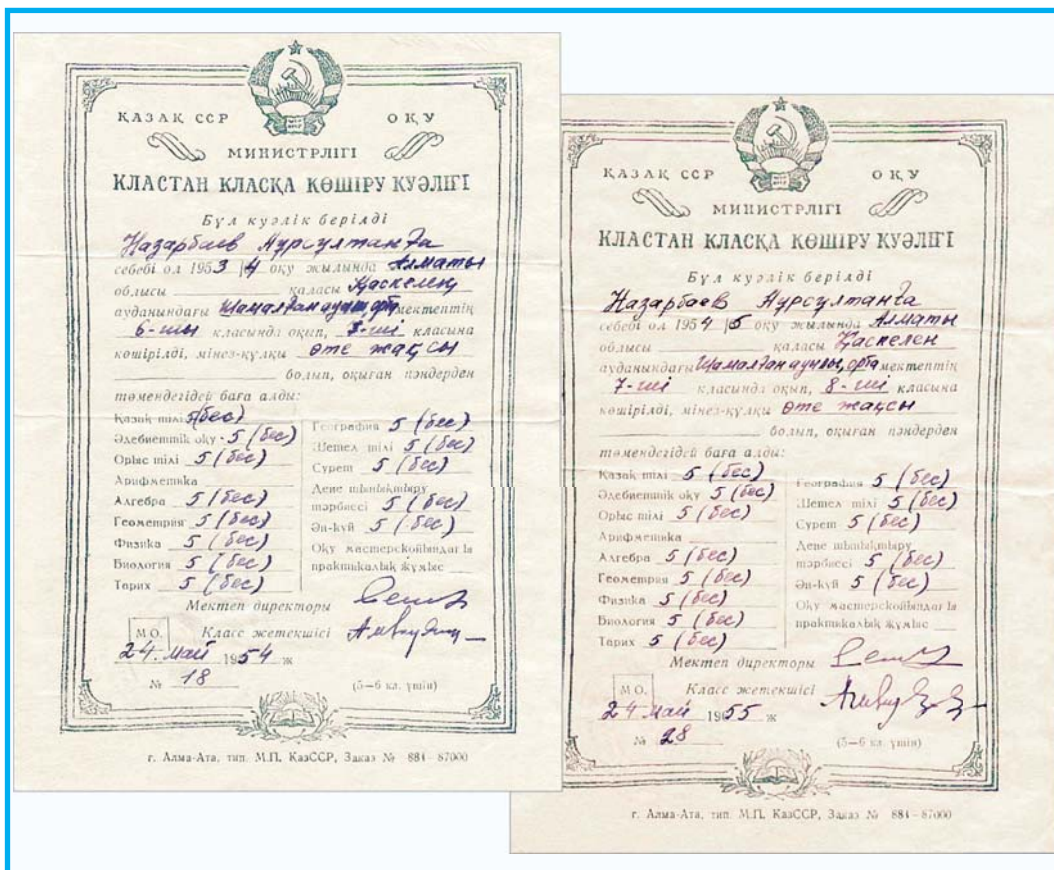 ҚАЗАҚ ССР ОҚУ
МИНИСТРЛІГІ
КЛАСТАН КЛАСҚА КӨШІРУ КУӘЛІГІ
Бұл куәлік берілді
Назарбаев Нұрсұлтанға
себебі ол 1953/4 оқу жылында Алматы
облысы қаласы Қаскелең
ауданындағы Шамалған ауыл орта мектептің
6-шы класында оқып, 7-ші класына
көшірілді, мінез-құлқы өте жақсы
болып, оқыған пәндерден
төмендегідей баға алды:
Қазақ тілі 5 (бес)
Әдебиеттік оқу 5 (бес)
Орыс тілі 5 (бес)
Арифметика
Алгебра 5 (бес)
Геометрия 5 (бес)
Физика 5 (бес)
Биология 5 (бес)
Тарих 5 (бес)
География 5 (бес)
Шетел тілі 5 (бес)
Сурет 5 (бес)
Дене шынықтыру
тәрбиесі 5 (бес)
Ән-күй 5 (бес)
Оқу мастерскойындағы
практикалық жұмыс
Мектеп директоры
М.О. Класс жетекшісі
24. май 1954 ж
№ 18 (5—6 кл. үшін)
г. Алма-Ата, тип. М.П. КазССР, Заказ № 884—87000
ҚАЗАҚ ССР ОҚУ
МИНИСТРЛІГІ
КЛАСТАН КЛАСҚА КӨШІРУ КУӘЛІГІ
Бұл куәлік берілді
Назарбаев Нұрсұлтанға
себебі ол 1954/5 оқу жылында Алматы
облысы қаласы Қаскелең
ауданындағы Шамалған ауылы, орта мектептің
7-ші класында оқып, 8-ші класына
көшірілді, мінез-құлқы өте жақсы
болып, оқыған пәндерден
төмендегідей баға алды:
Қазақ тілі 5 (бес)
Әдебиеттік оқу 5 (бес)
Орыс тілі 5 (бес)
Арифметика
Алгебра 5 (бес)
Геометрия 5 (бес)
Физика 5 (бес)
Биология 5 (бес)
Тарих 5 (бес)
География 5 (бес)
Шетел тілі 5 (бес)
Сурет 5 (бес)
Дене шынықтыру
тәрбиесі 5 (бес)
Ән-күй 5 (бес)
Оқу мастерскойындағы
практикалық жұмыс
Мектеп директоры
М.О. Класс жетекшісі
24 май 1955 ж
№ 28 (5—6 кл. үшін)
г. Алма-Ата, тип. М.П. КазССР, Заказ № 884—87000